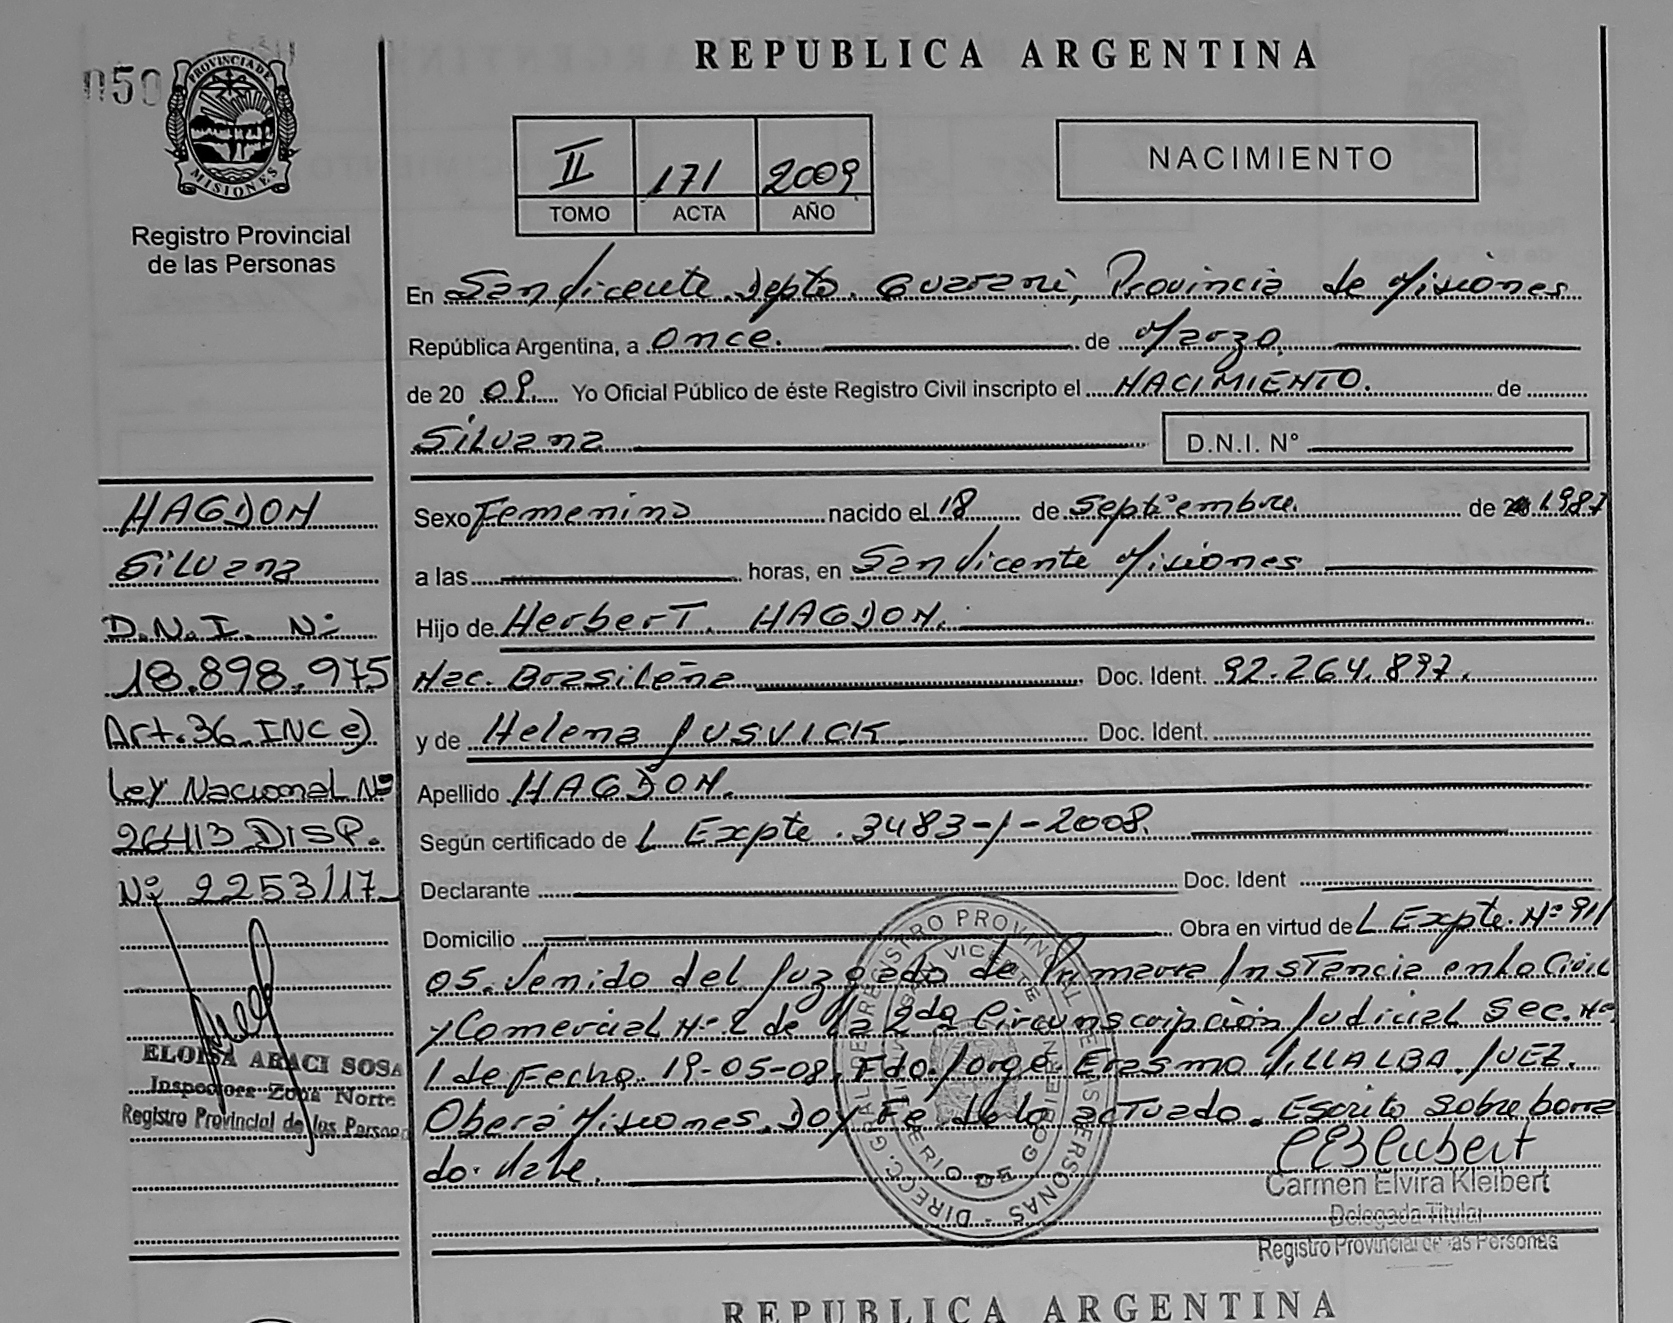 REPUBLICA ARGENTINA
050
PROVINCIA DE
MISIONES
Registro Provincial
de las Personas
II 171 2009
TOMO ACTA AÑO
NACIMIENTO
En San Vicente Depto. Guarani, Provincia de Misiones
República Argentina, a Once. de Marzo.
de 20 09. Yo Oficial Público de éste Registro Civil inscripto el NACIMIENTO. de
Silvana D.N.I. N°
HAGDON
Silvana
D.N.I. N°
18.898.975
Art.36 INC e)
Ley Nacional N°
26413 DISP.
N° 2253/17
ELOISA ARACI SOSA
Inspectora Zona Norte
Registro Provincial de las Person
Sexo Femenino nacido el 18 de Septiembre. de 1987
a las horas, en San Vicente Misiones
Hijo de Herbert. HAGDON.
Nac. Brasileña Doc. Ident. 92.264.897.
y de Helena JUSVICK Doc. Ident.
Apellido HAGDON.
Según certificado de L Expte. 3483-J-2008.
Declarante Doc. Ident
Domicilio Obra en virtud de L Expte. N° 911
05. Venido del Juzgado de Primera Instancia en lo Civil
y Comercial N° 2 de la 2da Circunscripción Judicial Sec. N°
1 de Fecha 19-05-08. Fdo. Jorge Erasmo VILLALBA. JUEZ.
Oberá Misiones. Doy Fe de lo actuado. Escrito sobre borra
do. Vale.
DIRECC. GRAL. DE REGISTRO PROVINCIAL DE LAS PERSONAS
SAN VICENTE
MINISTERIO DE GOBIERNO
Carmen Elvira Kleibert
Delegada Titular
Registro Provincial de las Personas
REPUBLICA ARGENTINA